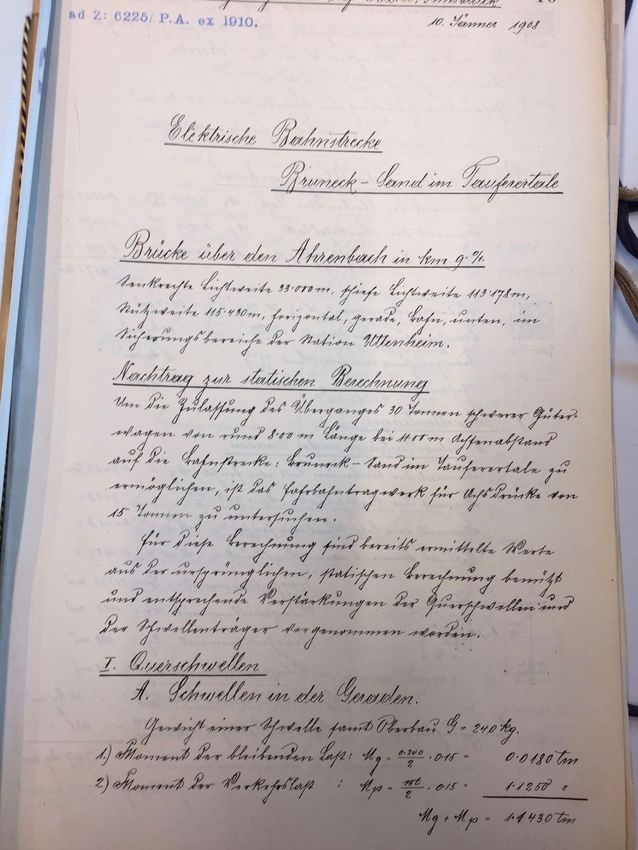 10
ad Z: 6225/ P.A. ex 1910.
10. Jänner 1908
Elektrische Bahnstrecke
Bruneck – Sand im Tauferertale
Brücke über den Ahrenbach in km 9·7/8
Senkrechte Lichtweite 33·000 m, schiefe Lichtweite 113·178 m,
Stützweite 115·430 m, horizontal, gerade, Bahn, unten, im
Sicherungsbereiche der Station Uttenheim.
Nachtrag zur statischen Berechnung
Um die Zulassung des Überganges 30 Tonnen schwerer Güter-
wagen von rund 8·00 m Länge bei 4·00 m Achsenabstand
auf die Bahnstrecke: Bruneck – Sand im Tauferertale zu
ermöglichen, ist das Fahrbahntragwerk für Achsdrücke von
15 Tonnen zu untersuchen.
Für diese Berechnung sind bereits ermittelte Werte
aus der ursprünglichen, statischen Berechnung benützt
und entsprechende Verstärkungen der Querschwellen und
der Schwellenträger vorgenommen worden.
I. Querschwellen
A. Schwellen in der Geraden.
Gewicht einer Schwelle samt Oberbau G = 240 kg.
1.) Moment der bleibenden Last: Mg = 0·240/2 · 0·15 = 0·0180 tm
2.) Moment der Verkehrslast : Mp = 15t/2 · 0·15 = 1·1250 "
Mg + Mp = 1·1430 tm